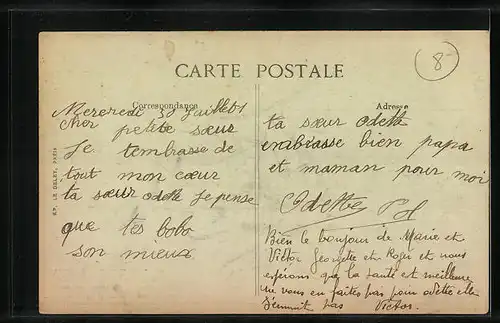 8
CARTE POSTALE
Correspondance
Adresse
Mercredi 30 Juillet
Cher petite sœur
Je tembrasse de
tout mon cœur
ta sœur odette Je pense
que tes bobo
son mieux
ta sœur odette
embrasse bien papa
et maman pour moi
Odette PH
Bien le bonjour de Marie et
Victor Georgette et Roger et nous
espérons que la santé est meilleure
ne vous en faites pas pour odette elle
s'ennuit pas Victor.
LE DELEY, PARIS